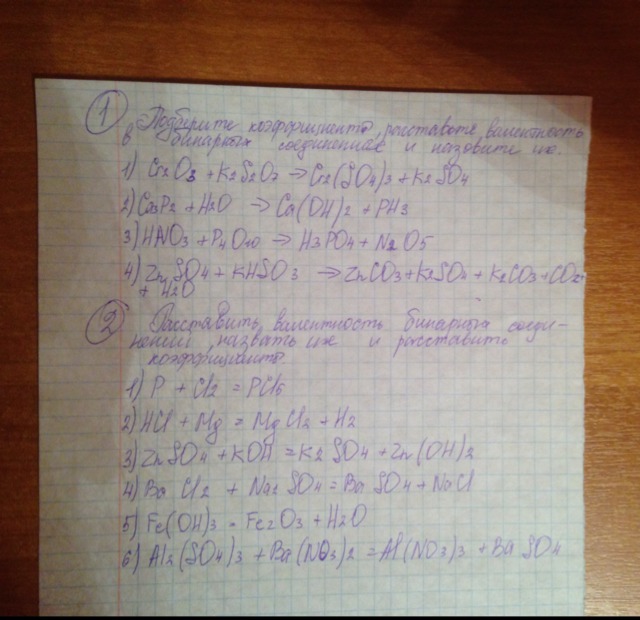 1
Подберите коэффициенты, расставьте валентность
в бинарных соединениях и назовите их.
1) Cr2O3 + K2S2O7 → Cr2(SO4)3 + K2SO4
2) Ca3P2 + H2O → Ca(OH)2 + PH3
3) HNO3 + P4O10 → H3PO4 + N2O5
4) ZnSO4 + KHSO3 → ZnCO3 + K2SO4 + K2CO3 + CO2
+ H2O
2
Расставить валентность бинарных соеди-
нений, назвать их и расставить
коэффициенты.
1) P + Cl2 = PCl5
2) HCl + Mg = MgCl2 + H2
3) ZnSO4 + KOH = K2SO4 + Zn(OH)2
4) BaCl2 + Na2SO4 = BaSO4 + NaCl
5) Fe(OH)3 = Fe2O3 + H2O
6) Al2(SO4)3 + Ba(NO3)2 = Al(NO3)3 + BaSO4